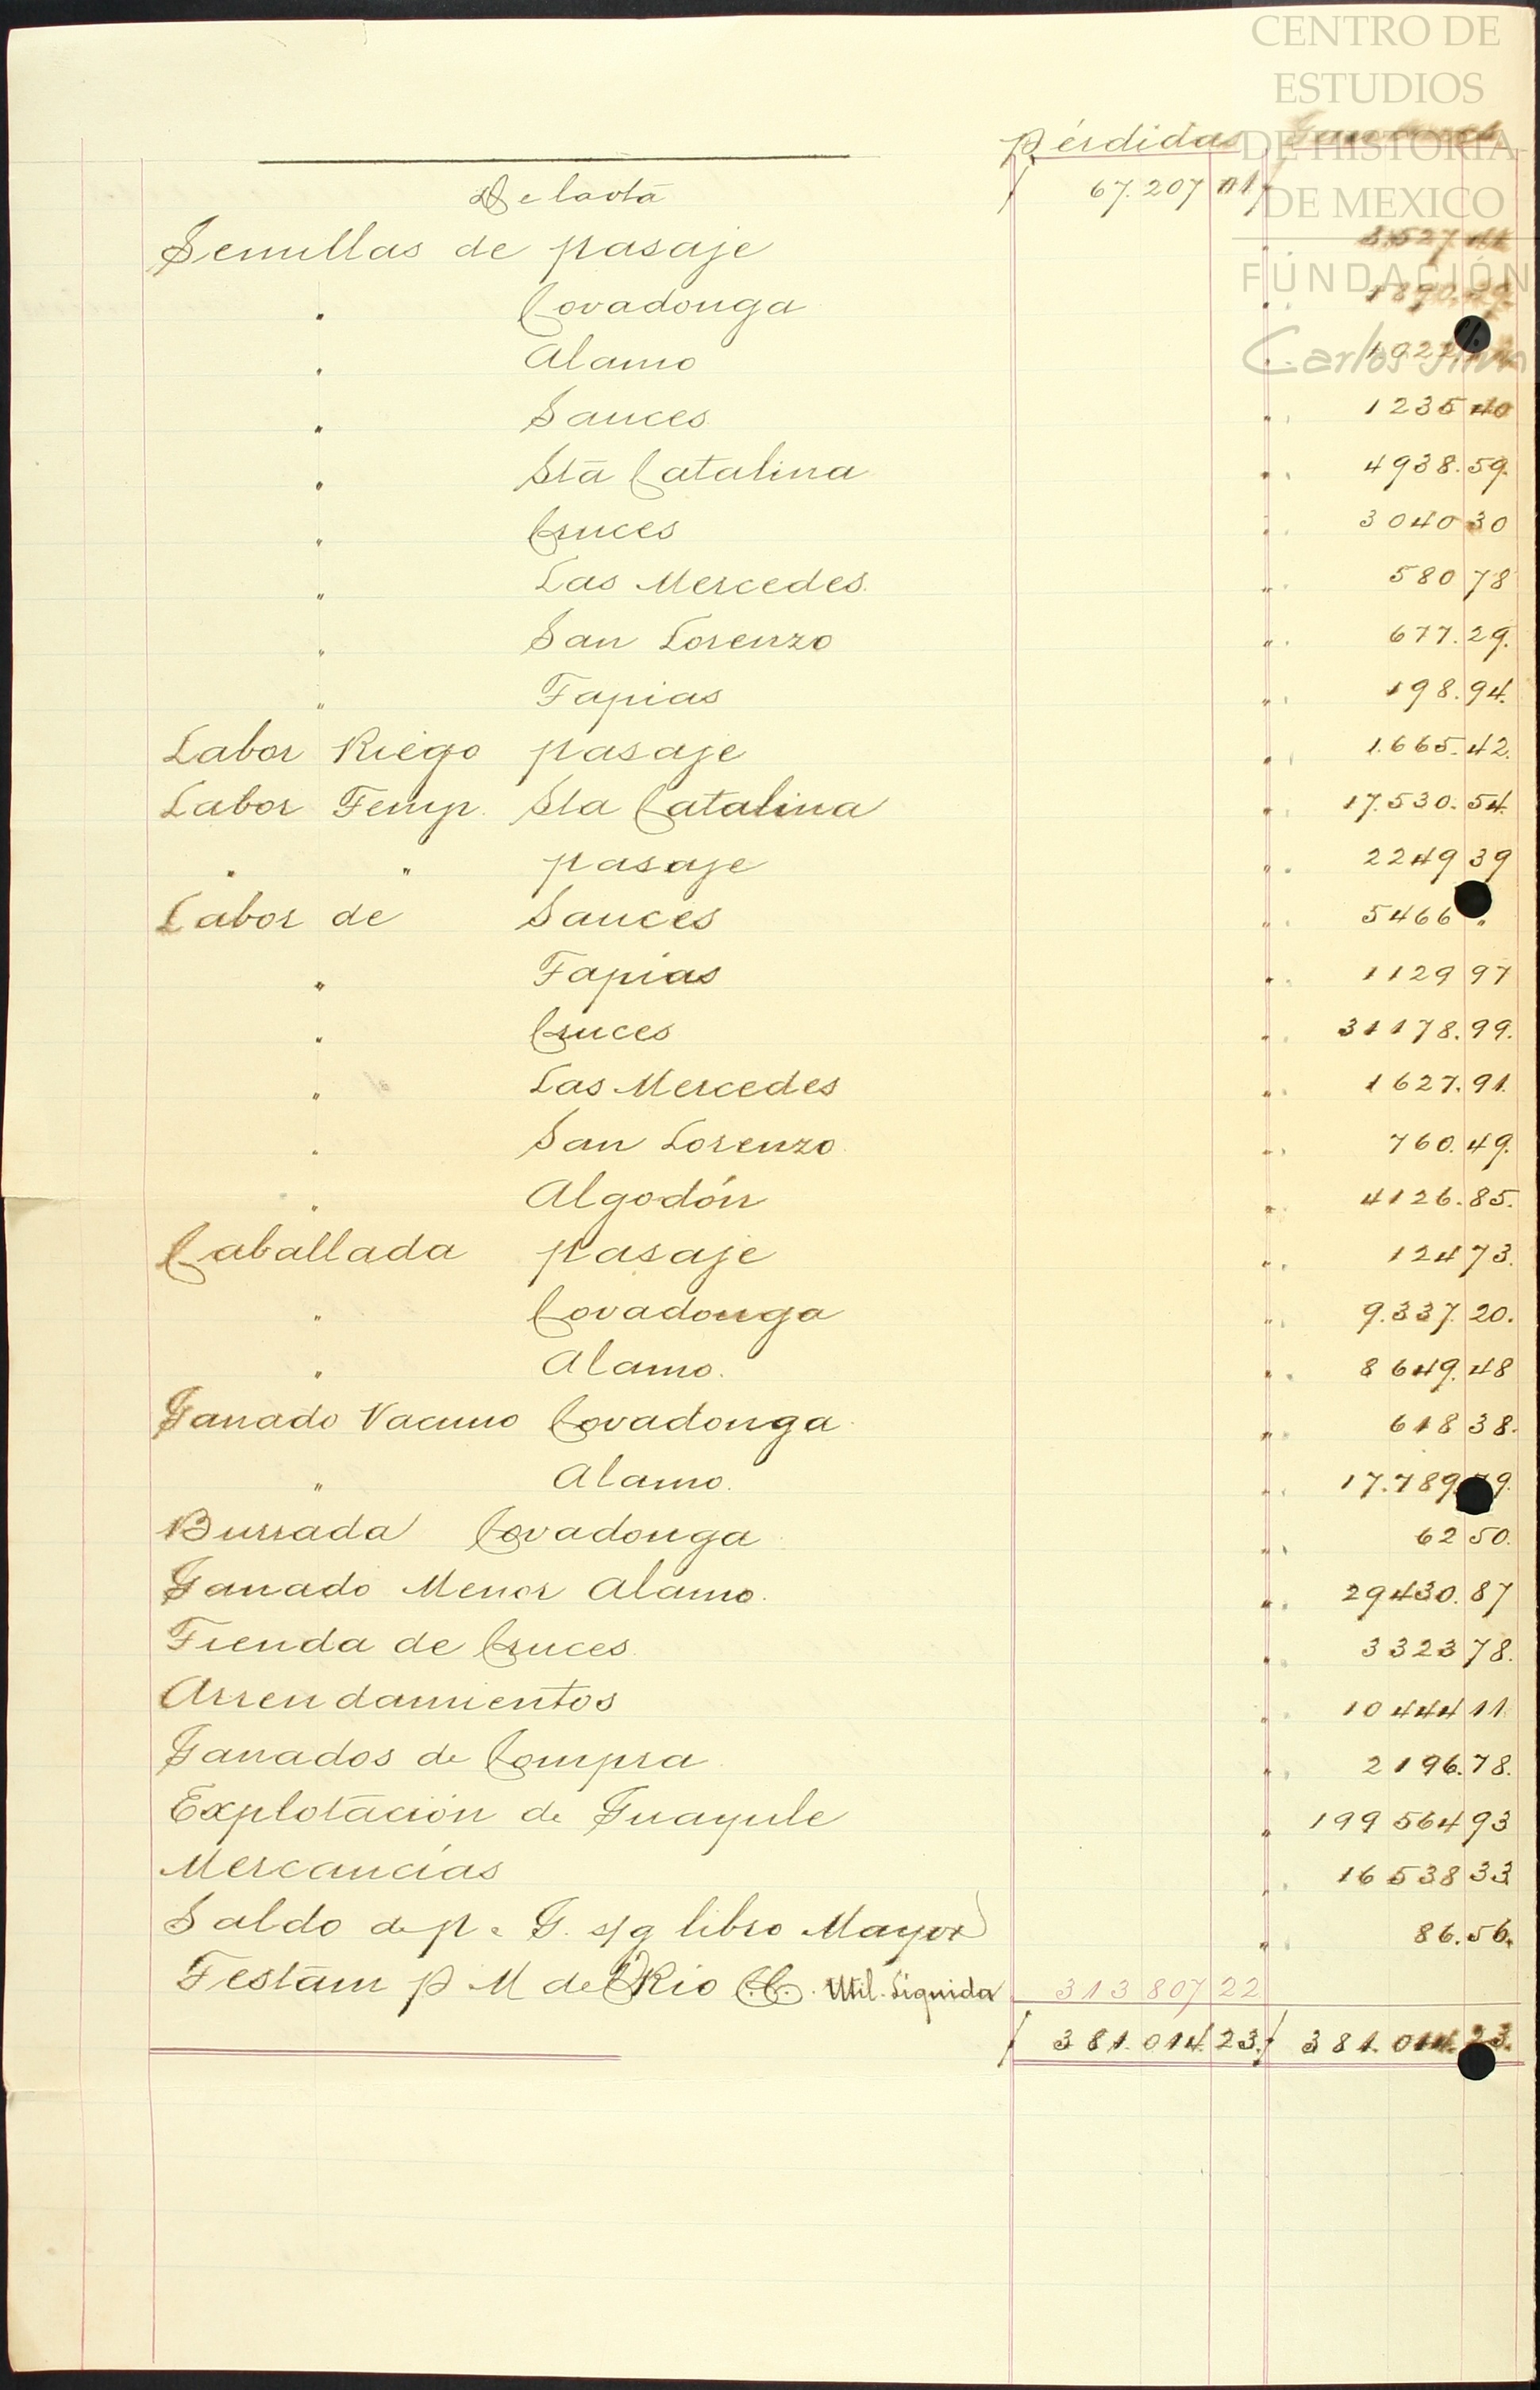 CENTRO DE
ESTUDIOS
DE HISTORIA
DE MEXICO
FUNDACIÓN
Carlos Slim
Pérdidas
De la vta 67.207 01
Semillas de pasaje
" Covadonga
" Alamo
" Sauces " 1235 40
" Sta Catalina " 4938.59.
" Cruces " 3040 30
" Las Mercedes. " 580 78
" San Lorenzo " 677.29.
" Tapias " 198.94.
Labor Riego pasaje " 1.665.42.
Labor Temp. Sta Catalina " 17.530.54.
" " pasaje " 2249 39
Labor de Sauces " 5466 "
" Tapias " 1129 97
" Cruces " 31178.99.
" Las Mercedes " 1627.91.
" San Lorenzo. " 760.49.
" Algodón " 4126.85.
Caballada pasaje " 124 73.
" Covadonga " 9.337.20.
" Alamo. " 8649.48
Ganado Vacuno Covadonga " 618 38.
" Alamo. " 17.789.79.
Burrada Covadonga " 62 50.
Ganado Menor Alamo. " 29430.87
Tienda de Cruces. " 3323 78.
Arrendamientos " 10444 11
Ganados de Compra " 2196.78.
Explotación de Guayule " 199564 93
Mercancías " 16538 33
Saldo de p. G. s/g libro Mayor " 86.56.
Testam P M del Rio C.C. Util. Liquida 313807 22
381.014.23. 381.014.23.